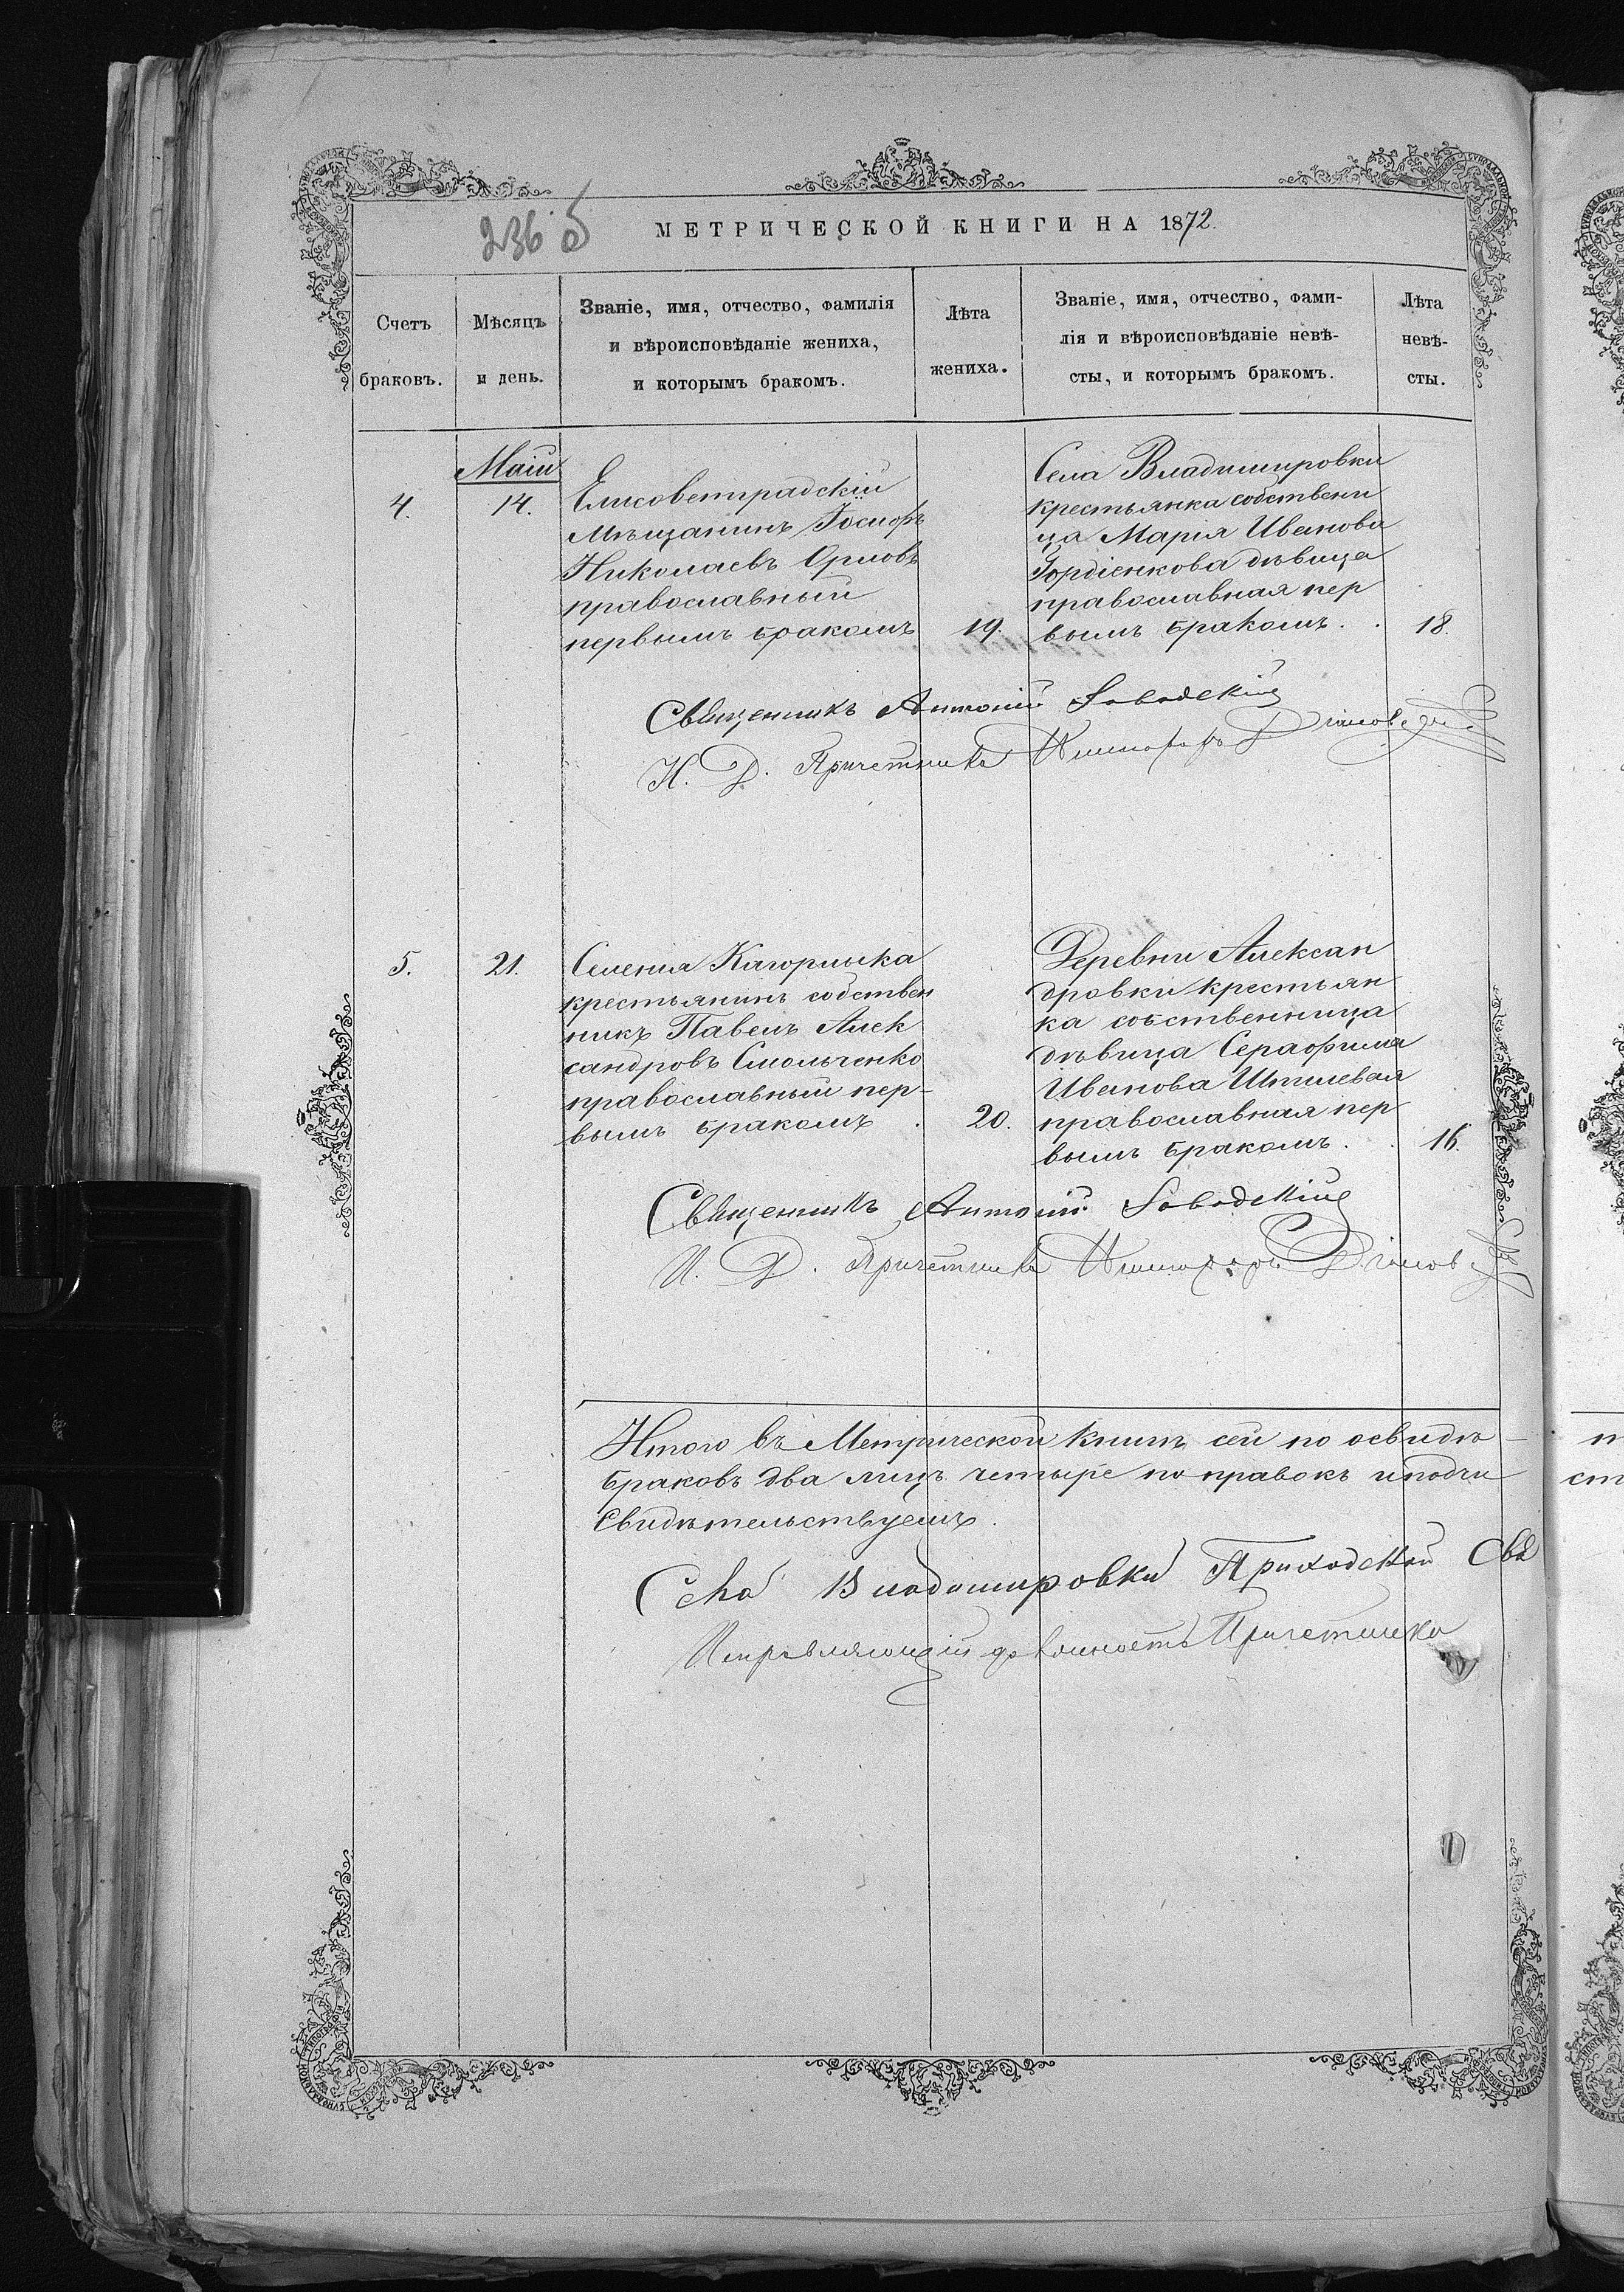 236 об
МЕТРИЧЕСКОЙ КНИГИ НА 1872.
Счетъ
браковъ.
Мѣсяцъ
и день.
Званіе, имя, отчество, фамилія
и вѣроисповѣданіе жениха,
и которымъ бракомъ.
Лѣта
жениха.
Званіе, имя, отчество, фами-
лія и вѣроисповѣданіе невѣ-
сты, и которымъ бракомъ.
Лѣта
невѣ-
сты.
Маій
4.
14.
Елисоветградскій
Мѣщанинъ Іосифъ
Николаевъ Орловъ
православный
первымъ бракомъ
19.
Села Владимировки
крестьянка собствени
ца Марія Иванова
Гордіенкова дѣвица
православная пер
вымъ бракомъ. .
18.
Священникъ Антоній
И. Д. Причетника
5.
21.
Селенія Кагорлыка
крестьянинъ собствен
никъ Павелъ Алек
сандровъ Смольченко
православный пер-
вымъ бракомъ .
20.
Деревни Алексан
дровки крестьян
ка собственница
дѣвица Серафима
Иванова
православная пер
вымъ бракомъ. .
16.
Священникъ Антоній
И. Д. Причетника
Итого въ Метрической книгѣ сей по освидѣ-
браковъ два лицъ четыре по правокъ и подчи
свидѣтельствуемъ.
Села Владимировки Приходской Свя
Исправляющій должность Причетника
п
ст